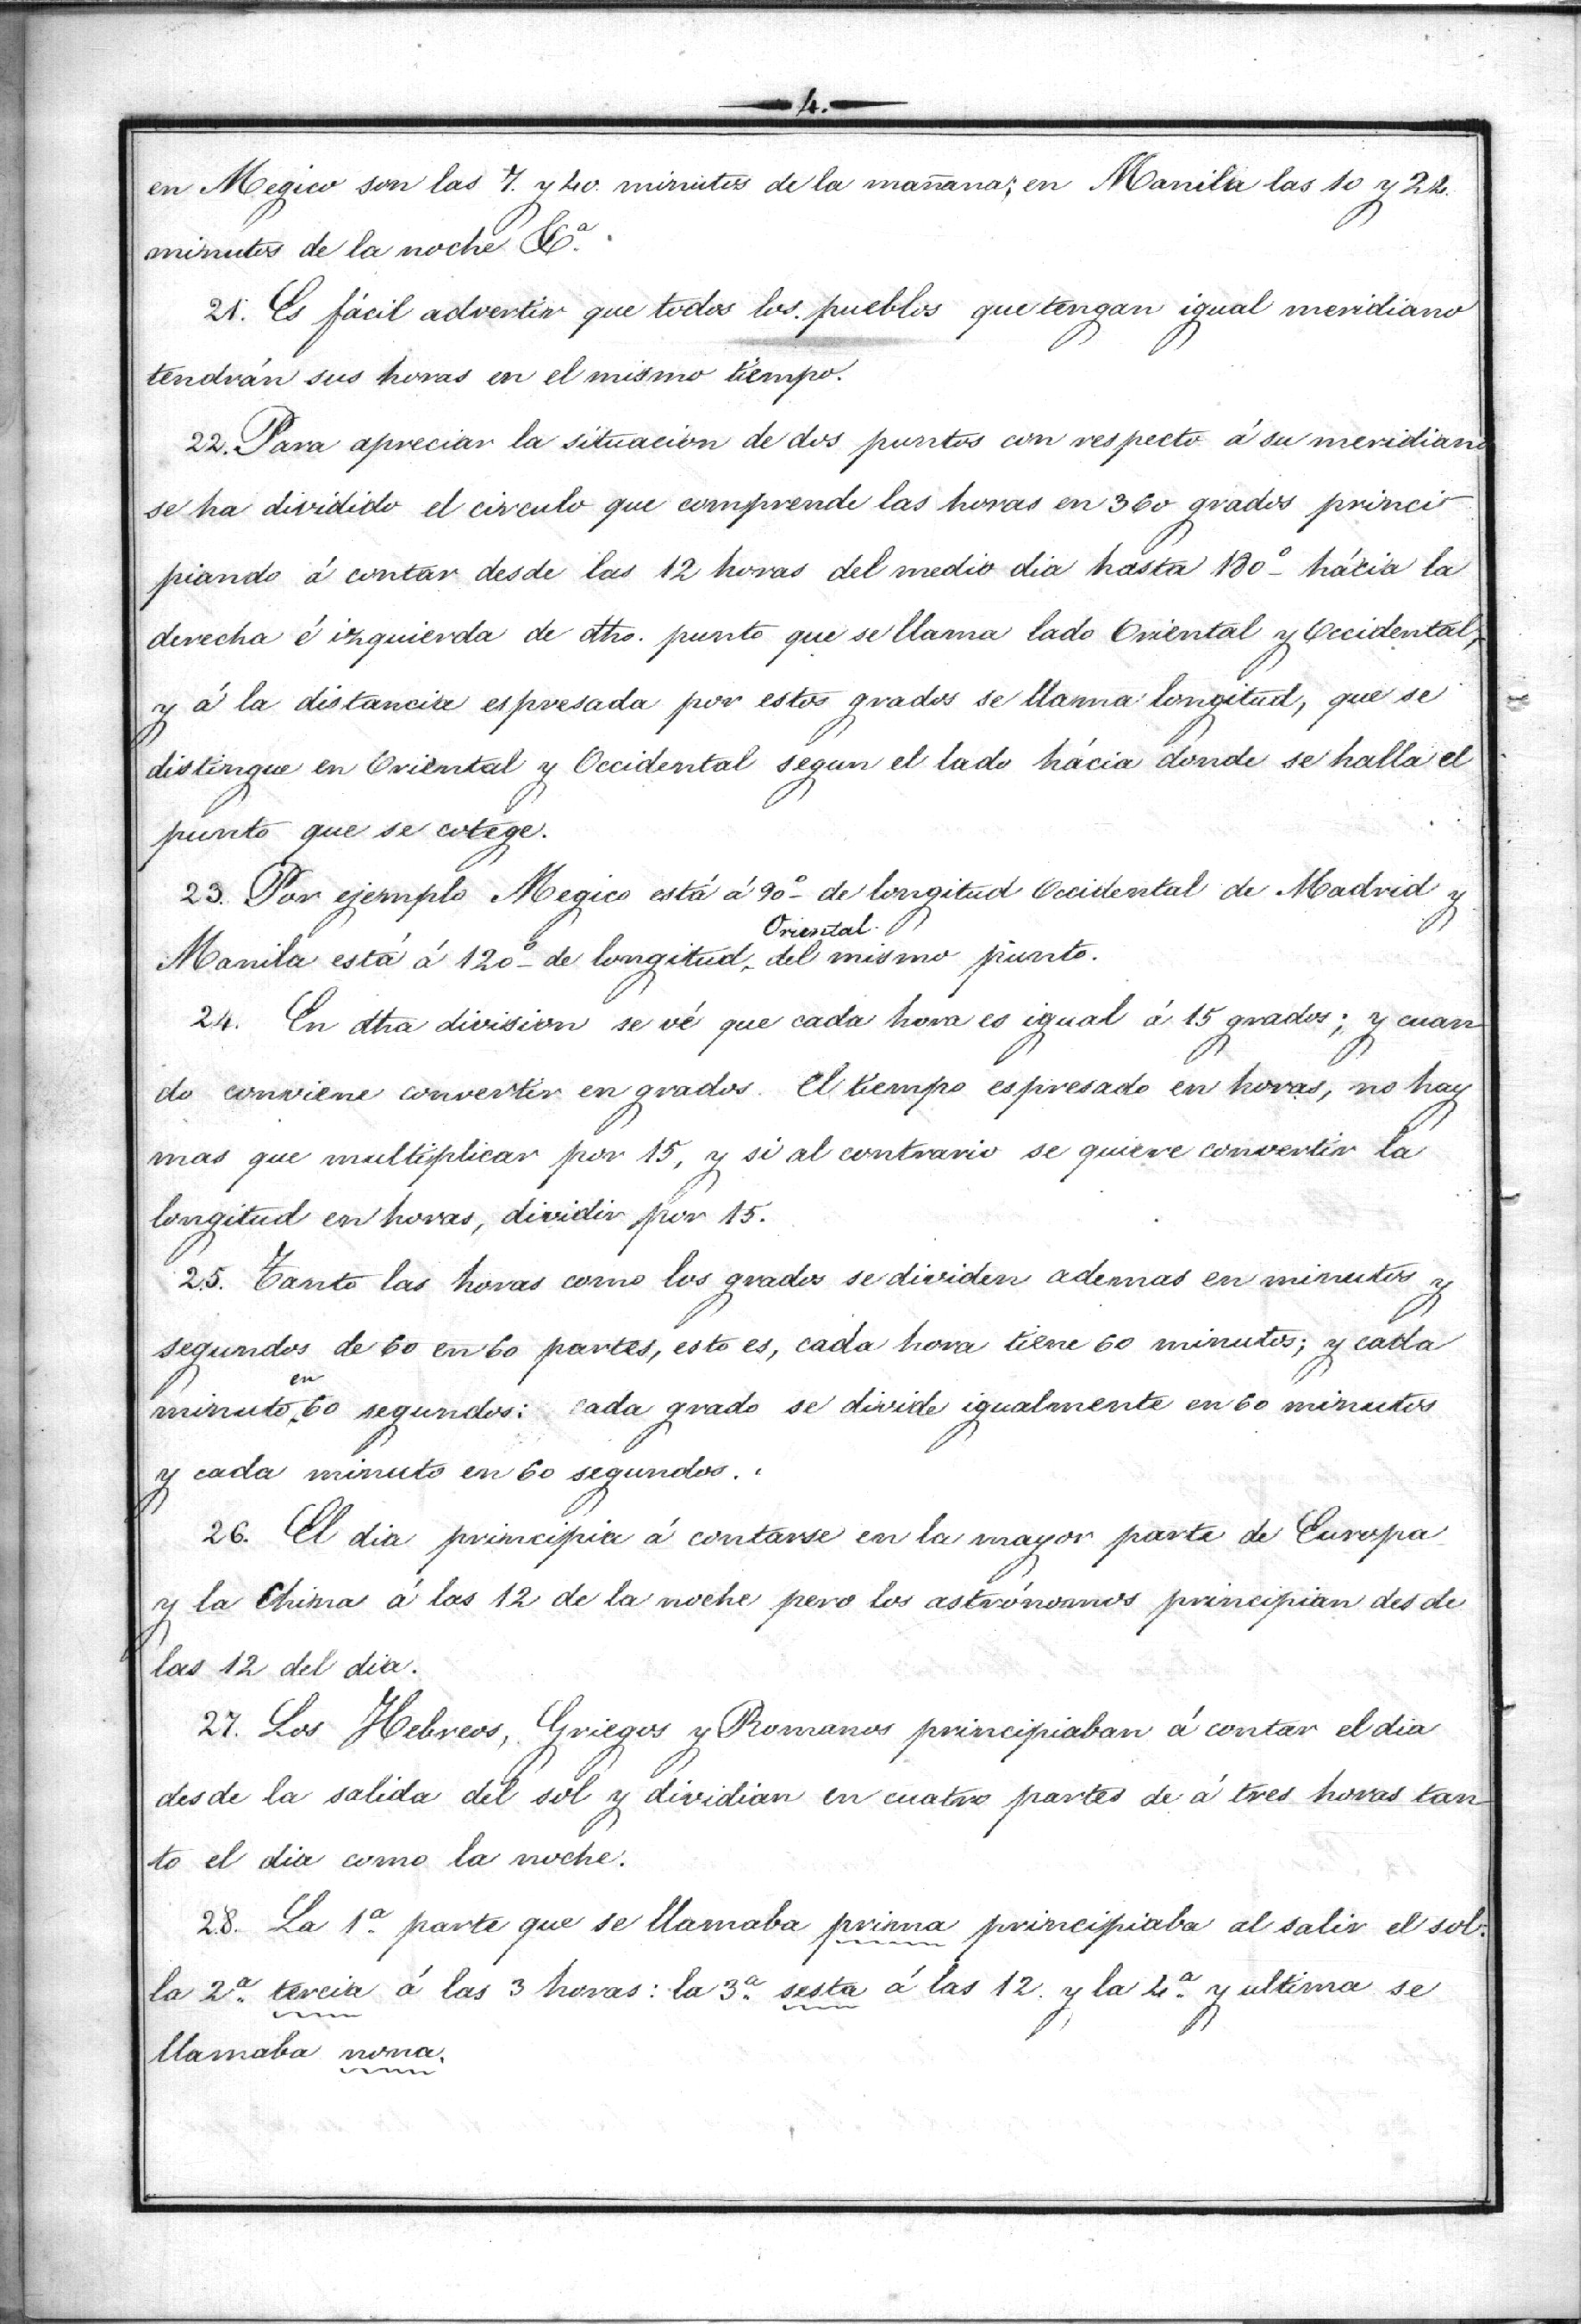 4.
en Megico son las 7. y 40. minutos de la mañana; en Manila las 10 y 24.
minutos de la noche &ª.
21. Es fácil advertir que todos los pueblos que tengan igual meridiano
tendrán sus horas en el mismo tiempo.
22. Para apreciar la situacion de dos puntos con respecto á su meridiano
se ha dividido el circulo que comprende las horas en 360 grados princi
piando á contar desde las 12 horas del medio dia hasta 180º hácia la
derecha é izquierda de dho. punto que se llama lado Oriental y Occidental,
y á la distancia espresada por estos grados se llama longitud, que se
distingue en Oriental y Occidental segun el lado hácia donde se halla el
punto que se cotége.
23. Por ejemplo Megico está á 90º de longitud Occidental de Madrid y
Oriental
Manila está á 120º de longitud, del mismo punto.
24. En dha division se vé que cada hora es igual á 15 grados; y cuan
do conviene convertir en grados. El tiempo espresado en horas, no hay
mas que multiplicar por 15, y si al contrario se quiere convertir la
longitud en horas, dividir por 15.
25. Tanto las horas como los grados se dividen ademas en minutos y
segundos de 60 en 60 partes, esto es, cada hora tiene 60 minutos; y cada
en
minuto 60 segundos: cada grado se divide igualmente en 60 minutos
y cada minuto en 60 segundos.
26. El dia principia á contarse en la mayor parte de Europa
y la China á las 12 de la noche pero los astrónomos principian desde
las 12 del dia.
27. Los Hebreos, Griegos y Romanos principiaban á contar el dia
desde la salida del sol y dividian en cuatro partes de á tres horas tan-
to el dia como la noche.
28. La 1ª parte que se llamaba prima principiaba al salir el sol:
la 2ª tercia á las 3 horas: la 3ª sesta á las 12. y la 4ª y ultima se
llamaba nona.